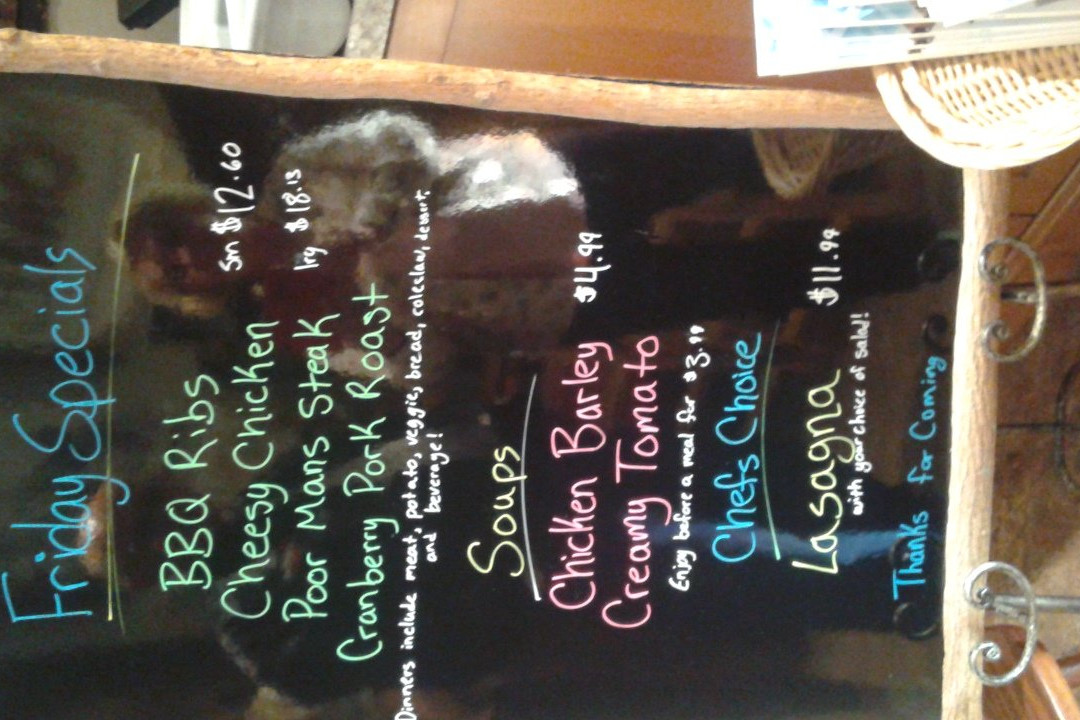 Friday Specials
BBQ Ribs
Cheesy Chicken Sm $12.60
Poor Mans Steak lrg $18.15
Cranberry Pork Roast
Dinners include meat, potato, veggie, bread, coleslaw, dessert,
and beverage!
Soups
Chicken Barley $4.99
Creamy Tomato
Enjoy before a meal for $3.99
Chefs Choice
Lasagna $11.99
with your choice of salad!
Thanks for Coming